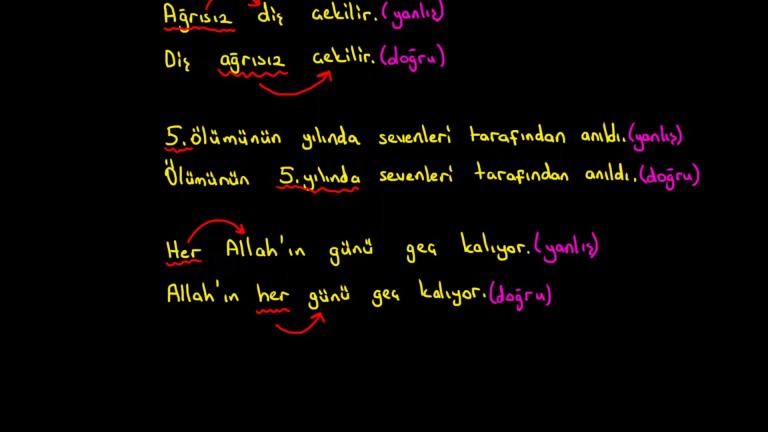 Ağrısız diş çekilir. (yanlış)
Diş ağrısız çekilir. (doğru)
5. ölümünün yılında sevenleri tarafından anıldı. (yanlış)
Ölümünün 5. yılında sevenleri tarafından anıldı. (doğru)
Her Allah'ın günü geç kalıyor. (yanlış)
Allah'ın her günü geç kalıyor. (doğru)